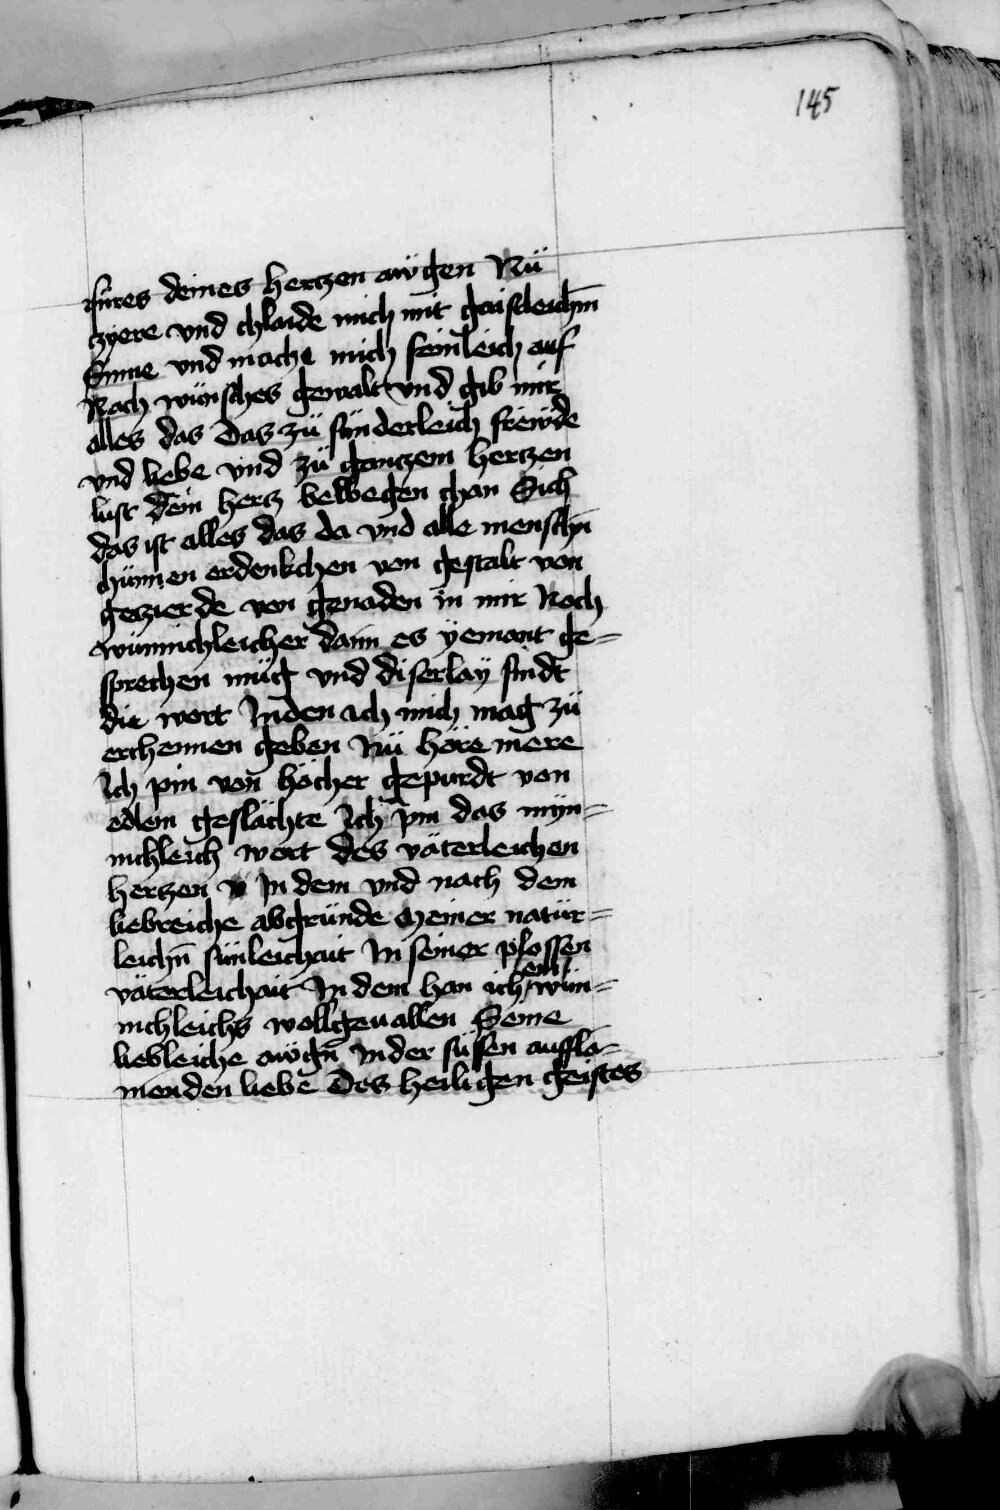 145
füres deines hertzen awgen Nü
czyere vnd chlaide mich mit gaistleichn̄
Sinne vnd mache mich feinleich auf
Nach wünsches gewalt vnd gib mir
alles das Das zü sünderleich frewde
vnd liebe vnd zü gantzem hertzen
lust Dein hertz bewegen chan Sich
das ist alles das da vnd alle menschn̄
chünnen erdenkchen von gestalt von
geczierde von genaden in mir Noch
wünnichleicher dann es yemant ge=
sprechen müg vnd diserlay sindt
die wort Inden ich mich mag zü
erchennen geben Nü höre mere
Ich pin von höcher gepurdt von
edlem geslächte Ich pin das myn=
nichleich wort des väterleichen
hertzen In dem vnd nach dem
liebreiche abgründe Meiner natür=
leichn̄ sünleichait In seiner plossen
väterleichait In dem han ich ein wün=
nichleichs wollgeuallen Seine
liebleiche awgn̄ In der süssen aufflā=
menden liebe Des heiligen geistes